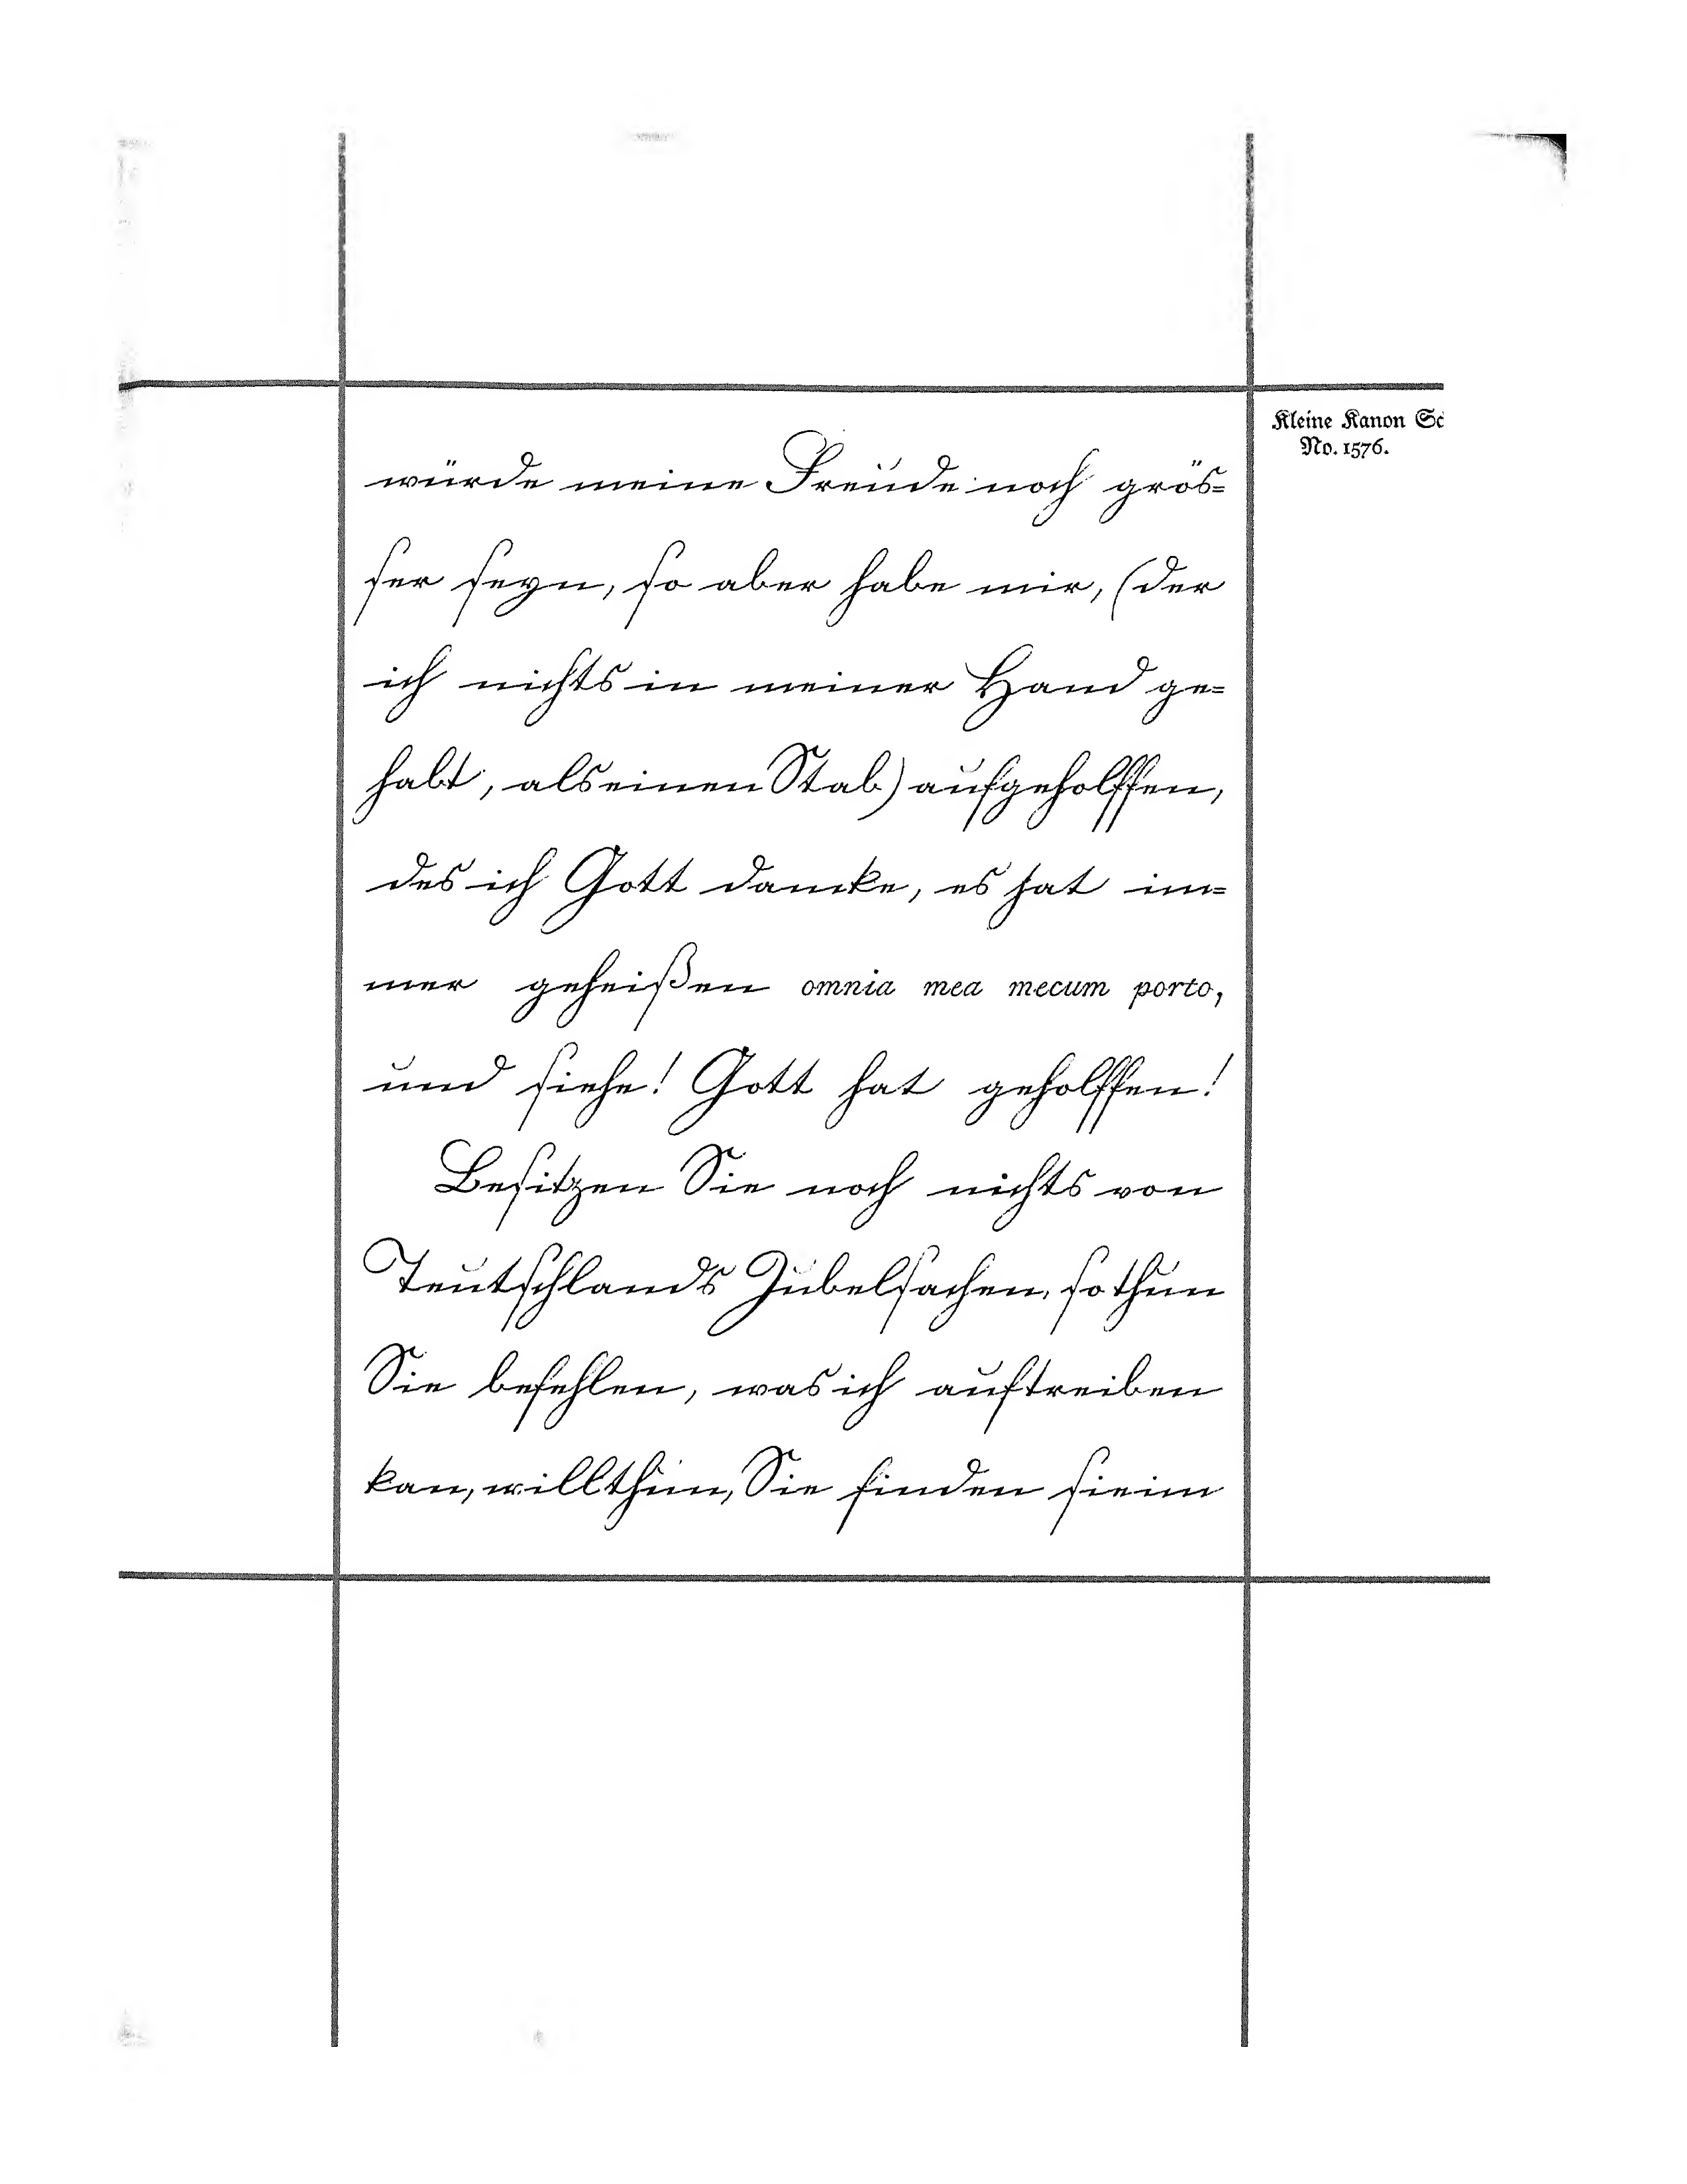 Kleine Kanon Sc
No. 1576.
würde meine Freude noch grös=
ser seyn, so aber habe mir, (der
ich nichts in meiner Hand ge=
habt, als einen Stab) aufgeholffen,
des ich Gott dancke, es hat im=
mer geheißen omnia mea mecum porto,
und siehe! Gott hat geholffen!
Besitzen Sie noch nichts von
Teutschlands Jubelsachen, so thun
Sie befehlen, was ich auftreiben
kan, will thun, Sie finden sie im